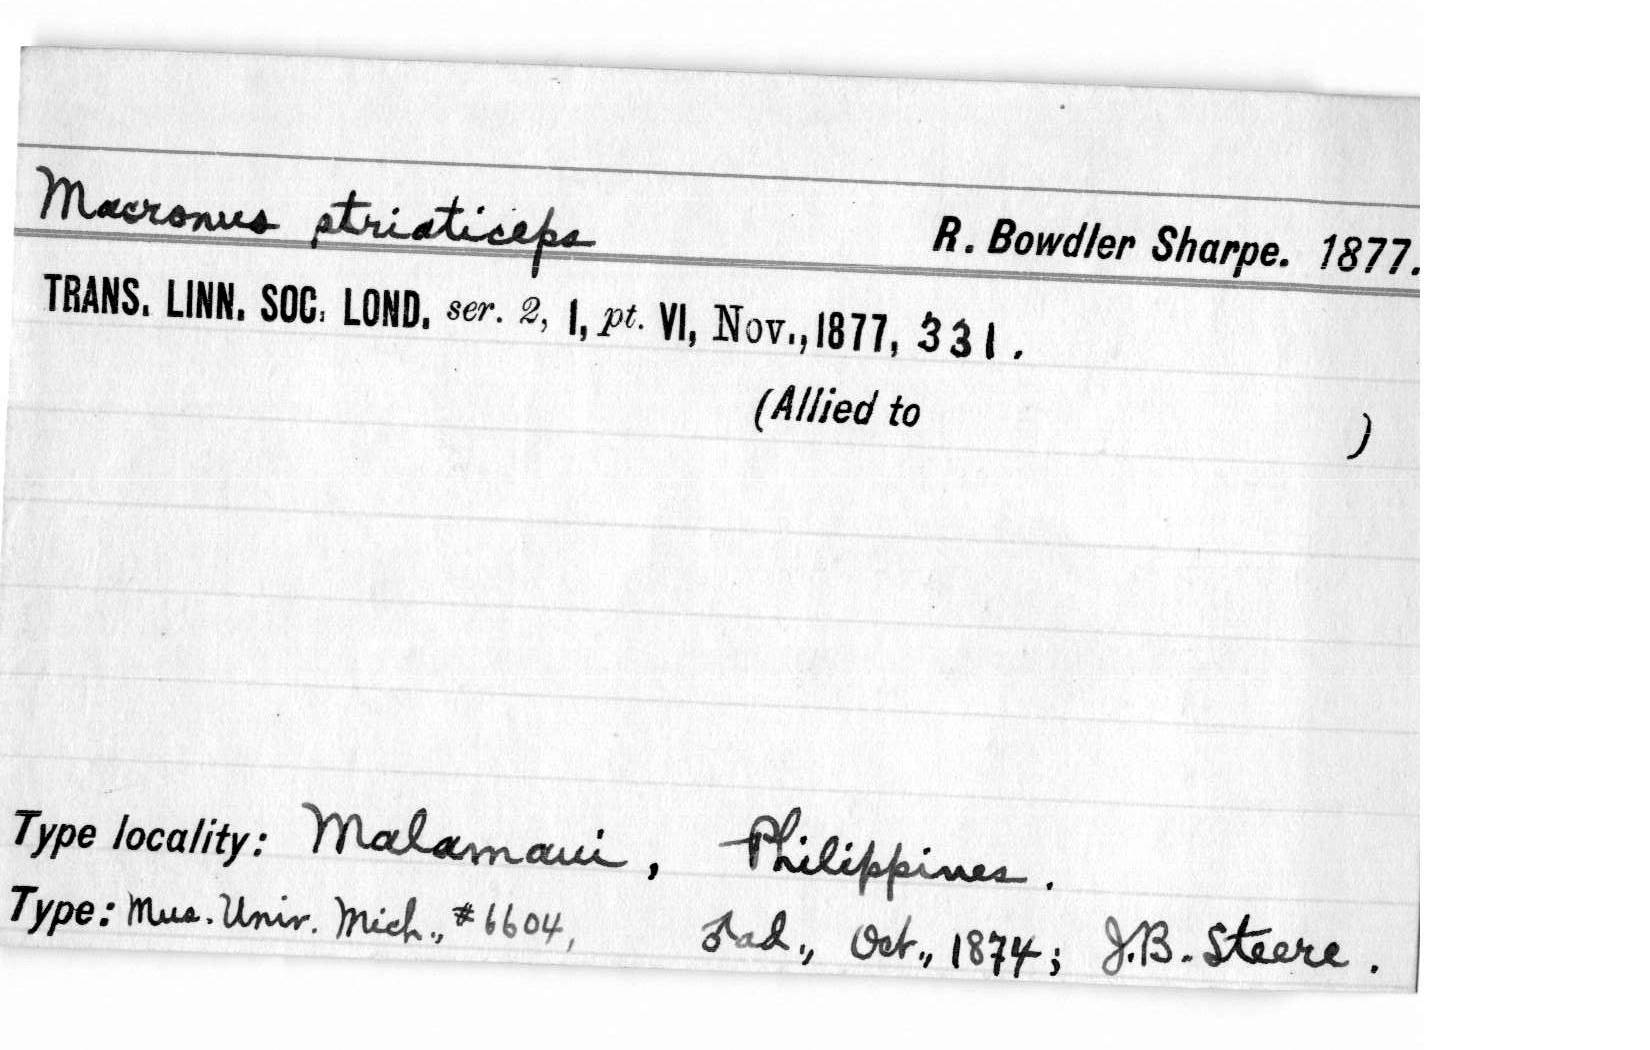 Macronus striaticeps R. Bowdler Sharpe. 1877.
TRANS. LINN. SOC. LOND. ser. 2, I, pt. VI, Nov., 1877, 331.
(Allied to )
Type locality: Malamaui, Philippines.
Type: Mus. Univ. Mich., #6604, ad., Oct., 1874; J.B. Steere.